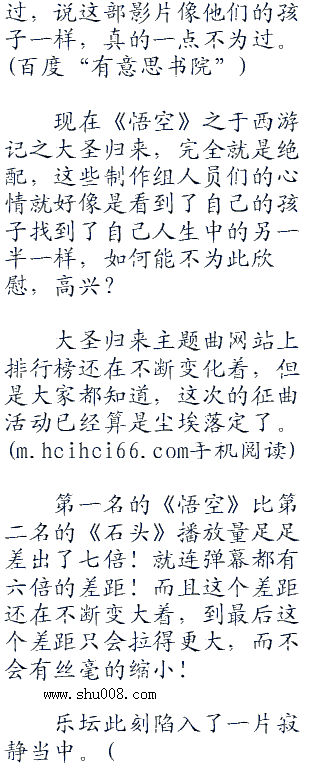 过，说这部影片像他们的孩
子一样，真的一点不为过。
(百度“有意思书院”)
现在《悟空》之于西游
记之大圣归来，完全就是绝
配，这些制作组人员们的心
情就好像是看到了自己的孩
子找到了自己人生中的另一
半一样，如何能不为此欣
慰，高兴？
大圣归来主题曲网站上
排行榜还在不断变化着，但
是大家都知道，这次的征曲
活动已经算是尘埃落定了。
(m.hcihci66.com手机阅读)
第一名的《悟空》比第
二名的《石头》播放量足足
差出了七倍！就连弹幕都有
六倍的差距！而且这个差距
还在不断变大着，到最后这
个差距只会拉得更大，而不
会有丝毫的缩小！
www.shu008.com
乐坛此刻陷入了一片寂
静当中。(